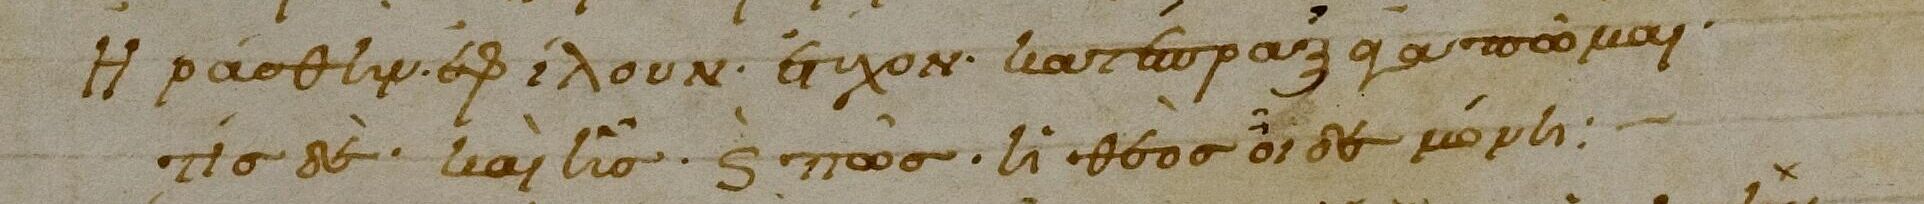 Ἠράσθην· ἐφίλουν· ἔτυχον· κατέπραξ' ἀγαπῶμαι·
τίς δὲ· καὶ ἧς· καὶ πῶς· ἡ θεὸς οἶδε μόνη: